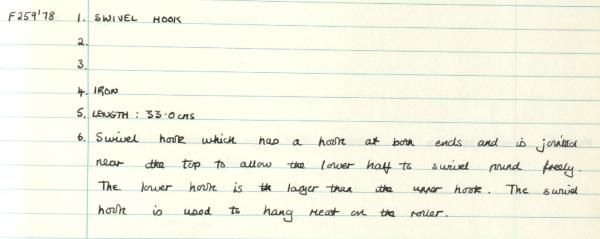 F259'78 1. SWIVEL HOOK
2.
3.
4. IRON
5. LENGTH : 33.0 cms
6. Swivel hook which has a hook at both ends and is jointed
near the top to allow the lower half to swivel round freely.
The lower hook is larger than the upper hook. The swivel
hook is used to hang meat on the roller.